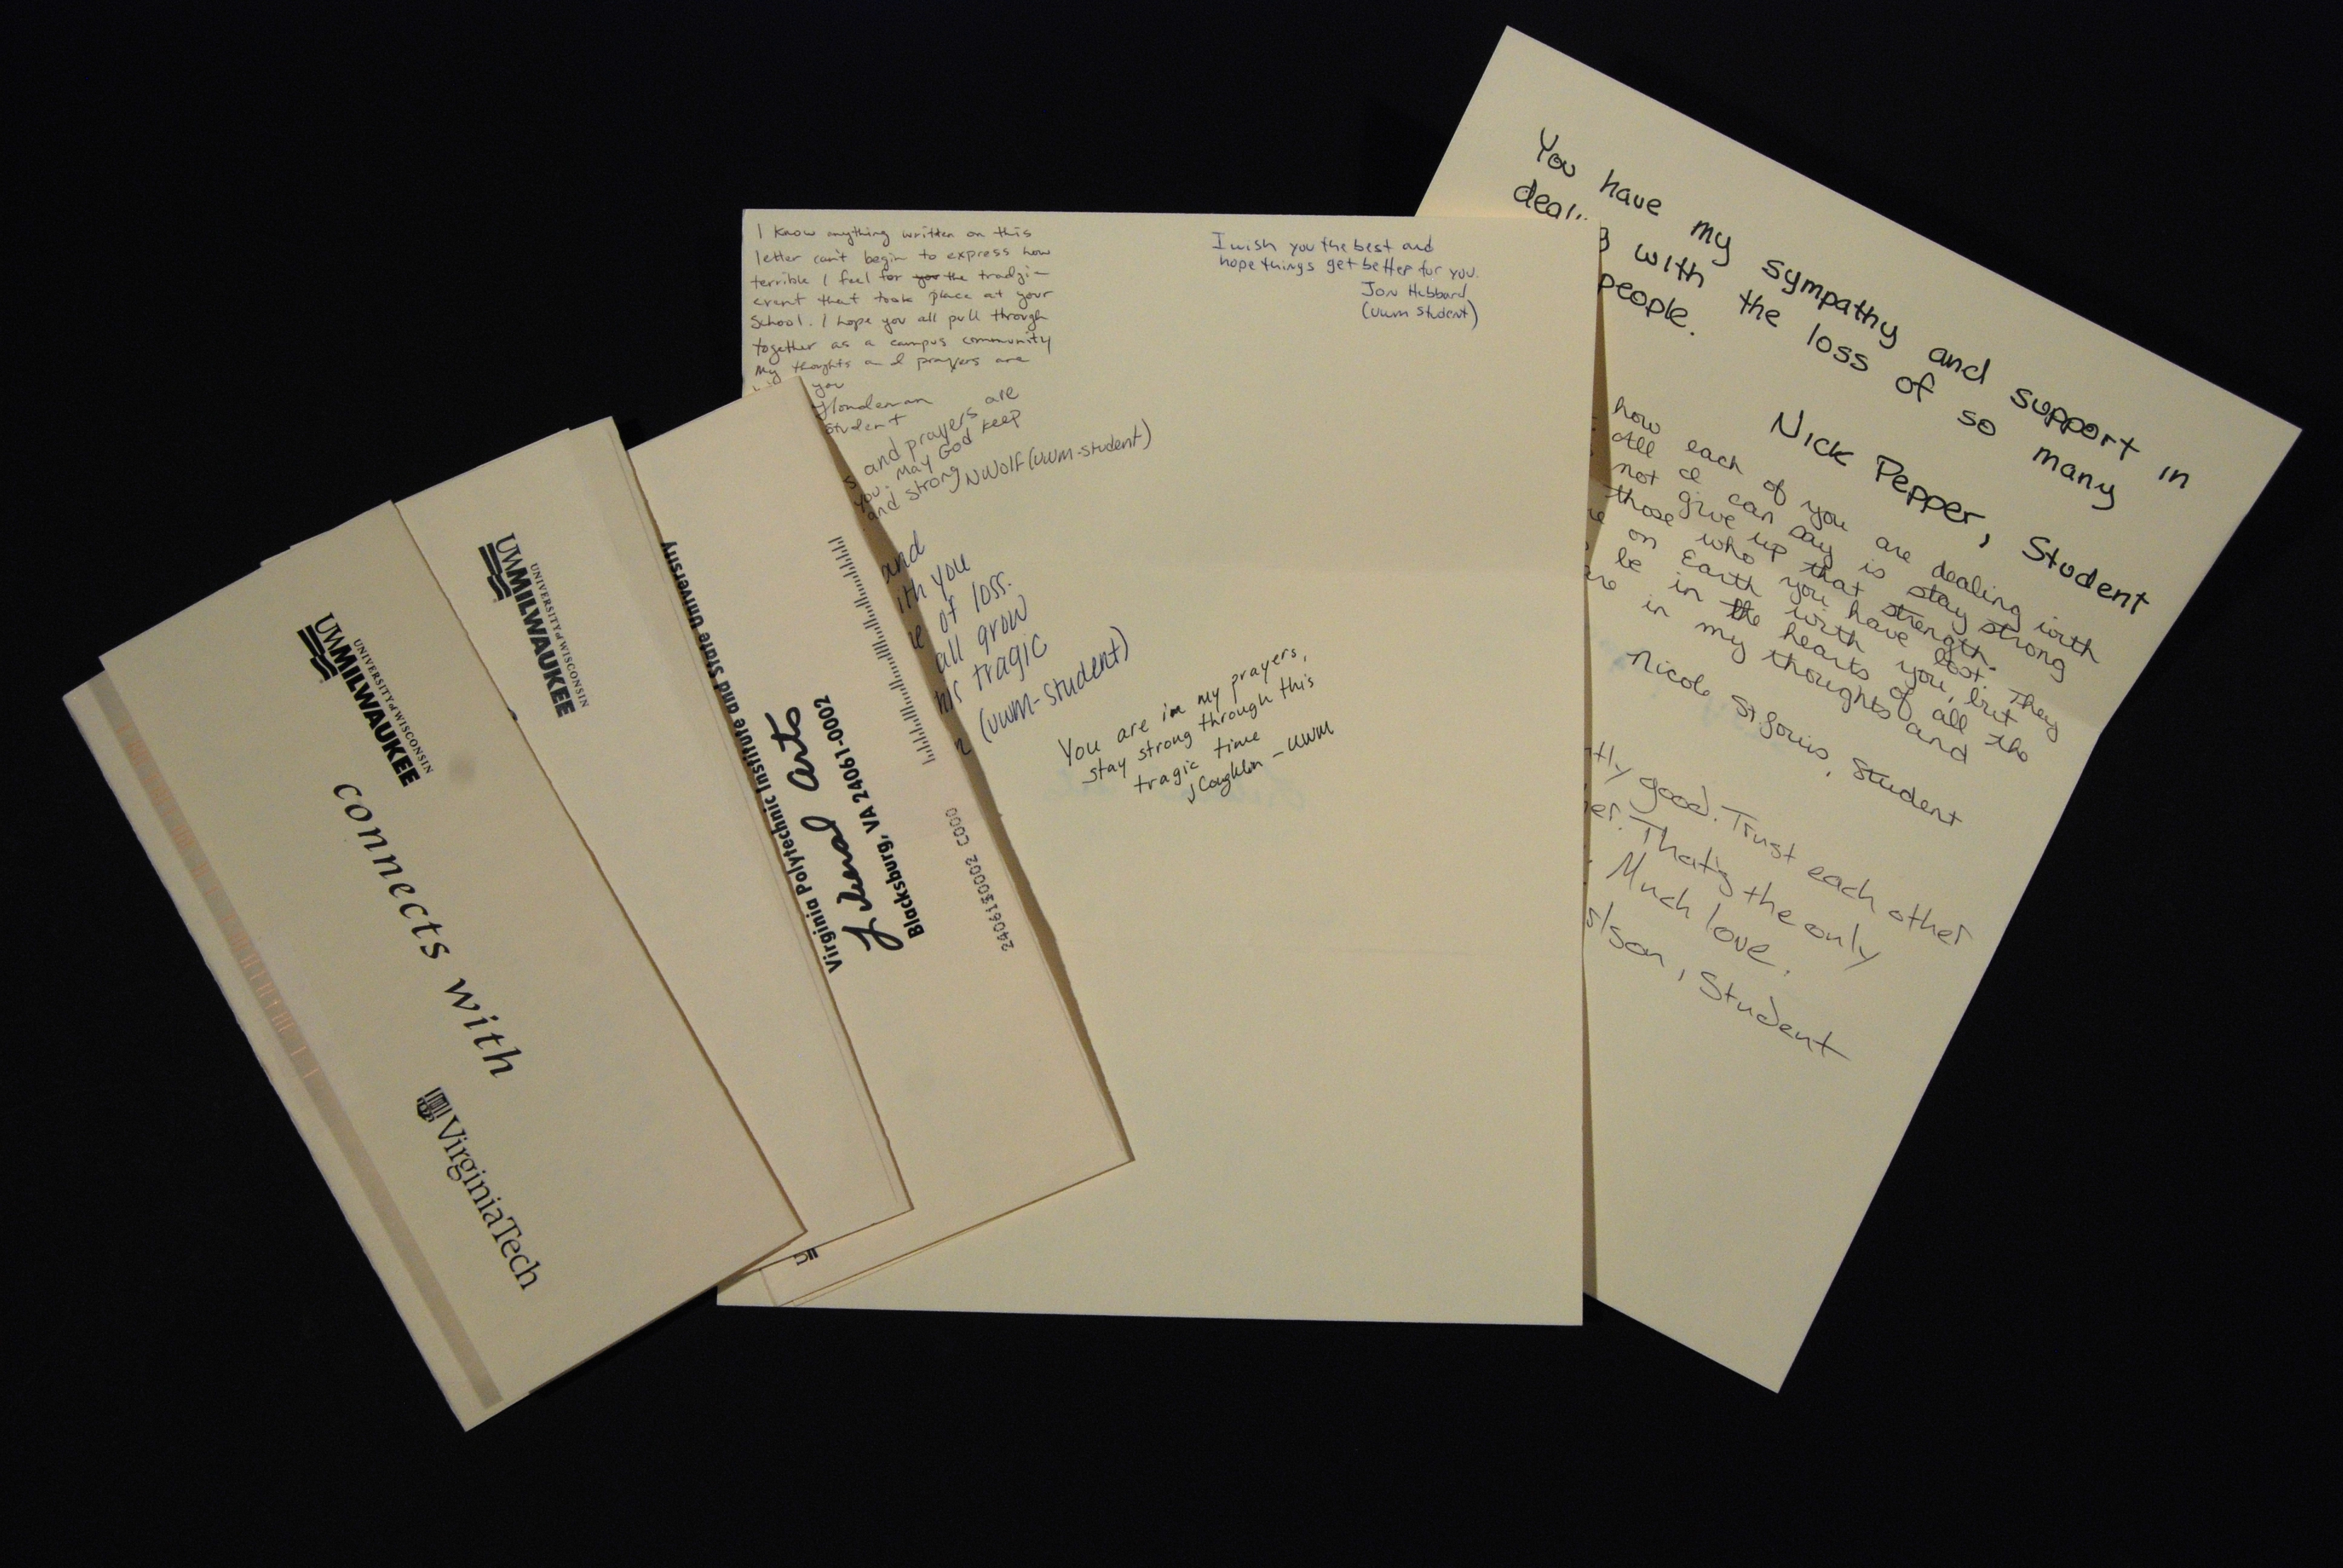 UNIVERSITY of WISCONSIN
UWMILWAUKEE
connects with
VirginiaTech
UNIVERSITY of WISCONSIN
UWMILWAUKEE
Virginia Polytechnic Institute and State University
Liberal Arts
Blacksburg, VA 24061-0002
2406130002 C000
I know anything written on this
letter can't begin to express how
terrible I feel for you the tradgi-
event that took place at your
School. I hope you all pull through
together as a campus community
My thoghts and prayers are
you
student
and prayers are
you. May God keep
and strong NWolf (uwm-student)
and
ith you
of loss.
all grow
his tragic
(uwm-student)
I wish you the best and
hope things get better for you.
Jon Hubbard
(uwm student)
You are in my prayers,
stay strong through this
tragic time
JCoughlin - UWM
You have my sympathy and support in
dealing with the loss of so many
people.
Nick Pepper, Student
how each of you are dealing with
All I can say is stay strong
not give up that strength.
those who you have lost. They
on Earth with you, but
be in the hearts of all the
in my thoughts and
Nicole St.Louis, Student
tly good. Trust each other
er. That's the only
Much love,
lson, Student